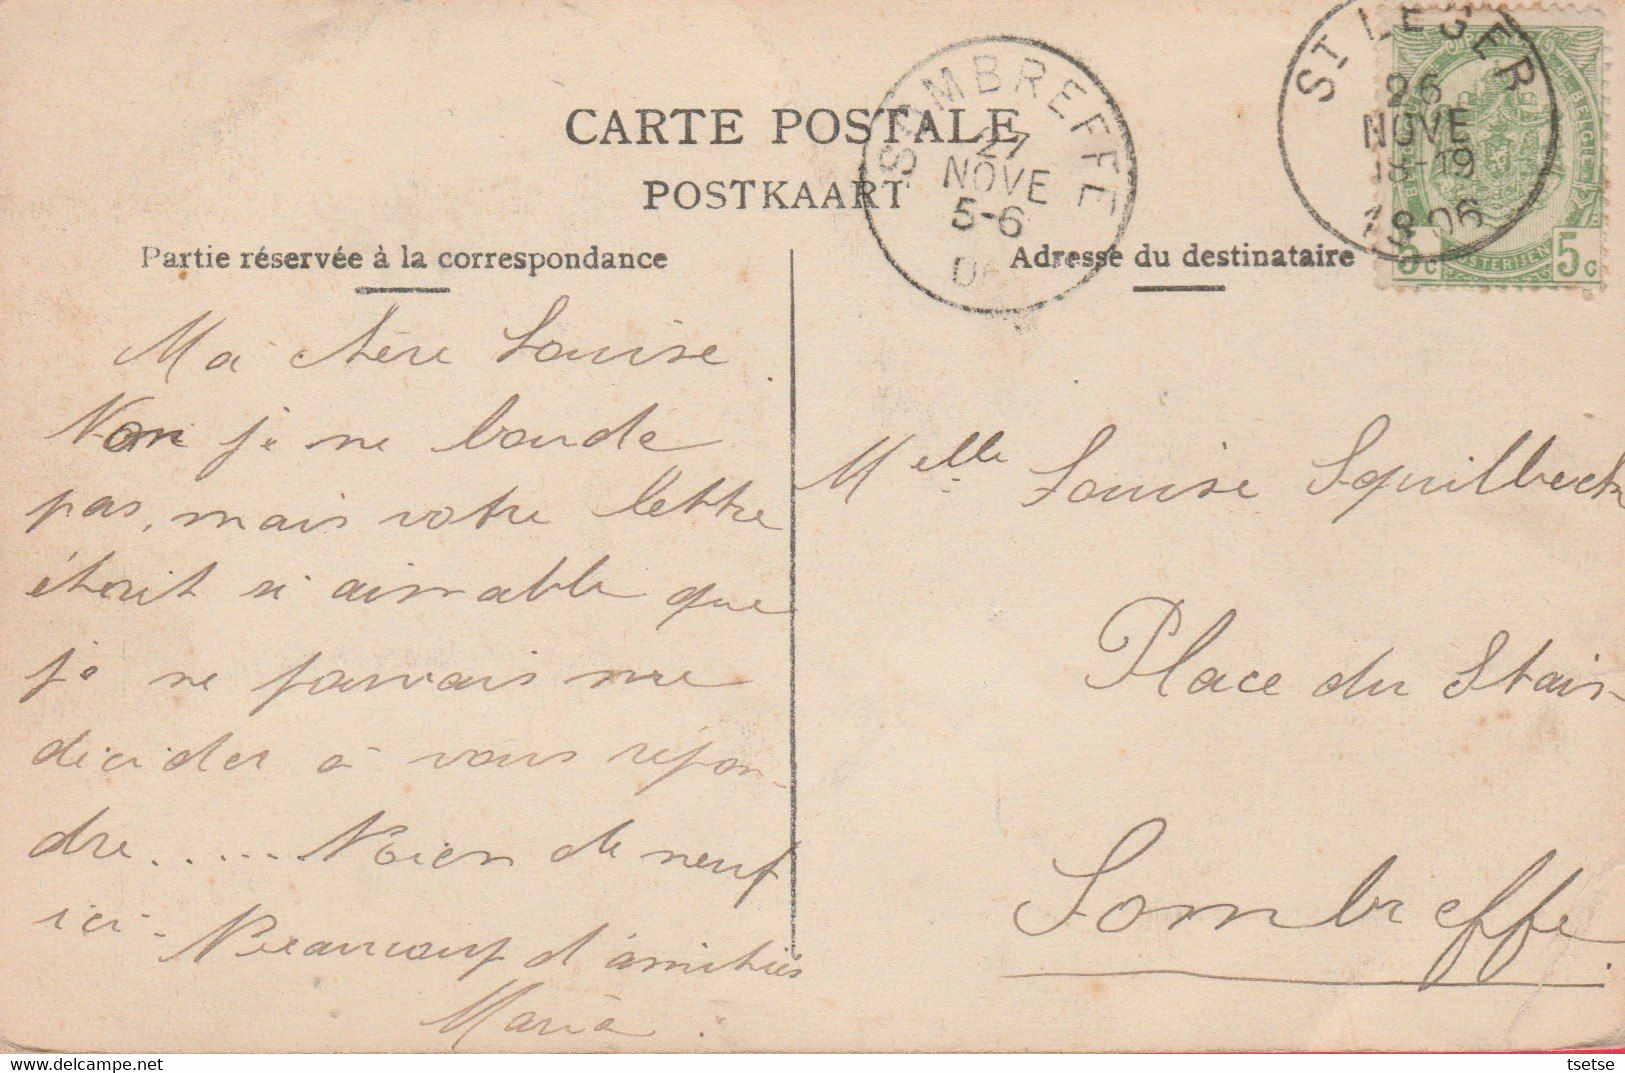 CARTE POSTALE
POSTKAART
Partie réservée à la correspondance
Adresse du destinataire
SOMBREFFE
27
NOVE
5-6
ST LEGER
26
NOVE
18-19
1906
5c 5c
Ma chère Louise.
Non je ne boude
pas, mais votre lettre
était si aimable que
je ne pouvais me
décider à vous répon-
dre...... Rien de neuf
ici. Beaucoup d'amitiés
Maria.
Melle Louise Squilbeck
Place du Stain
Sombreffe.
Delcampe.net
tsetse